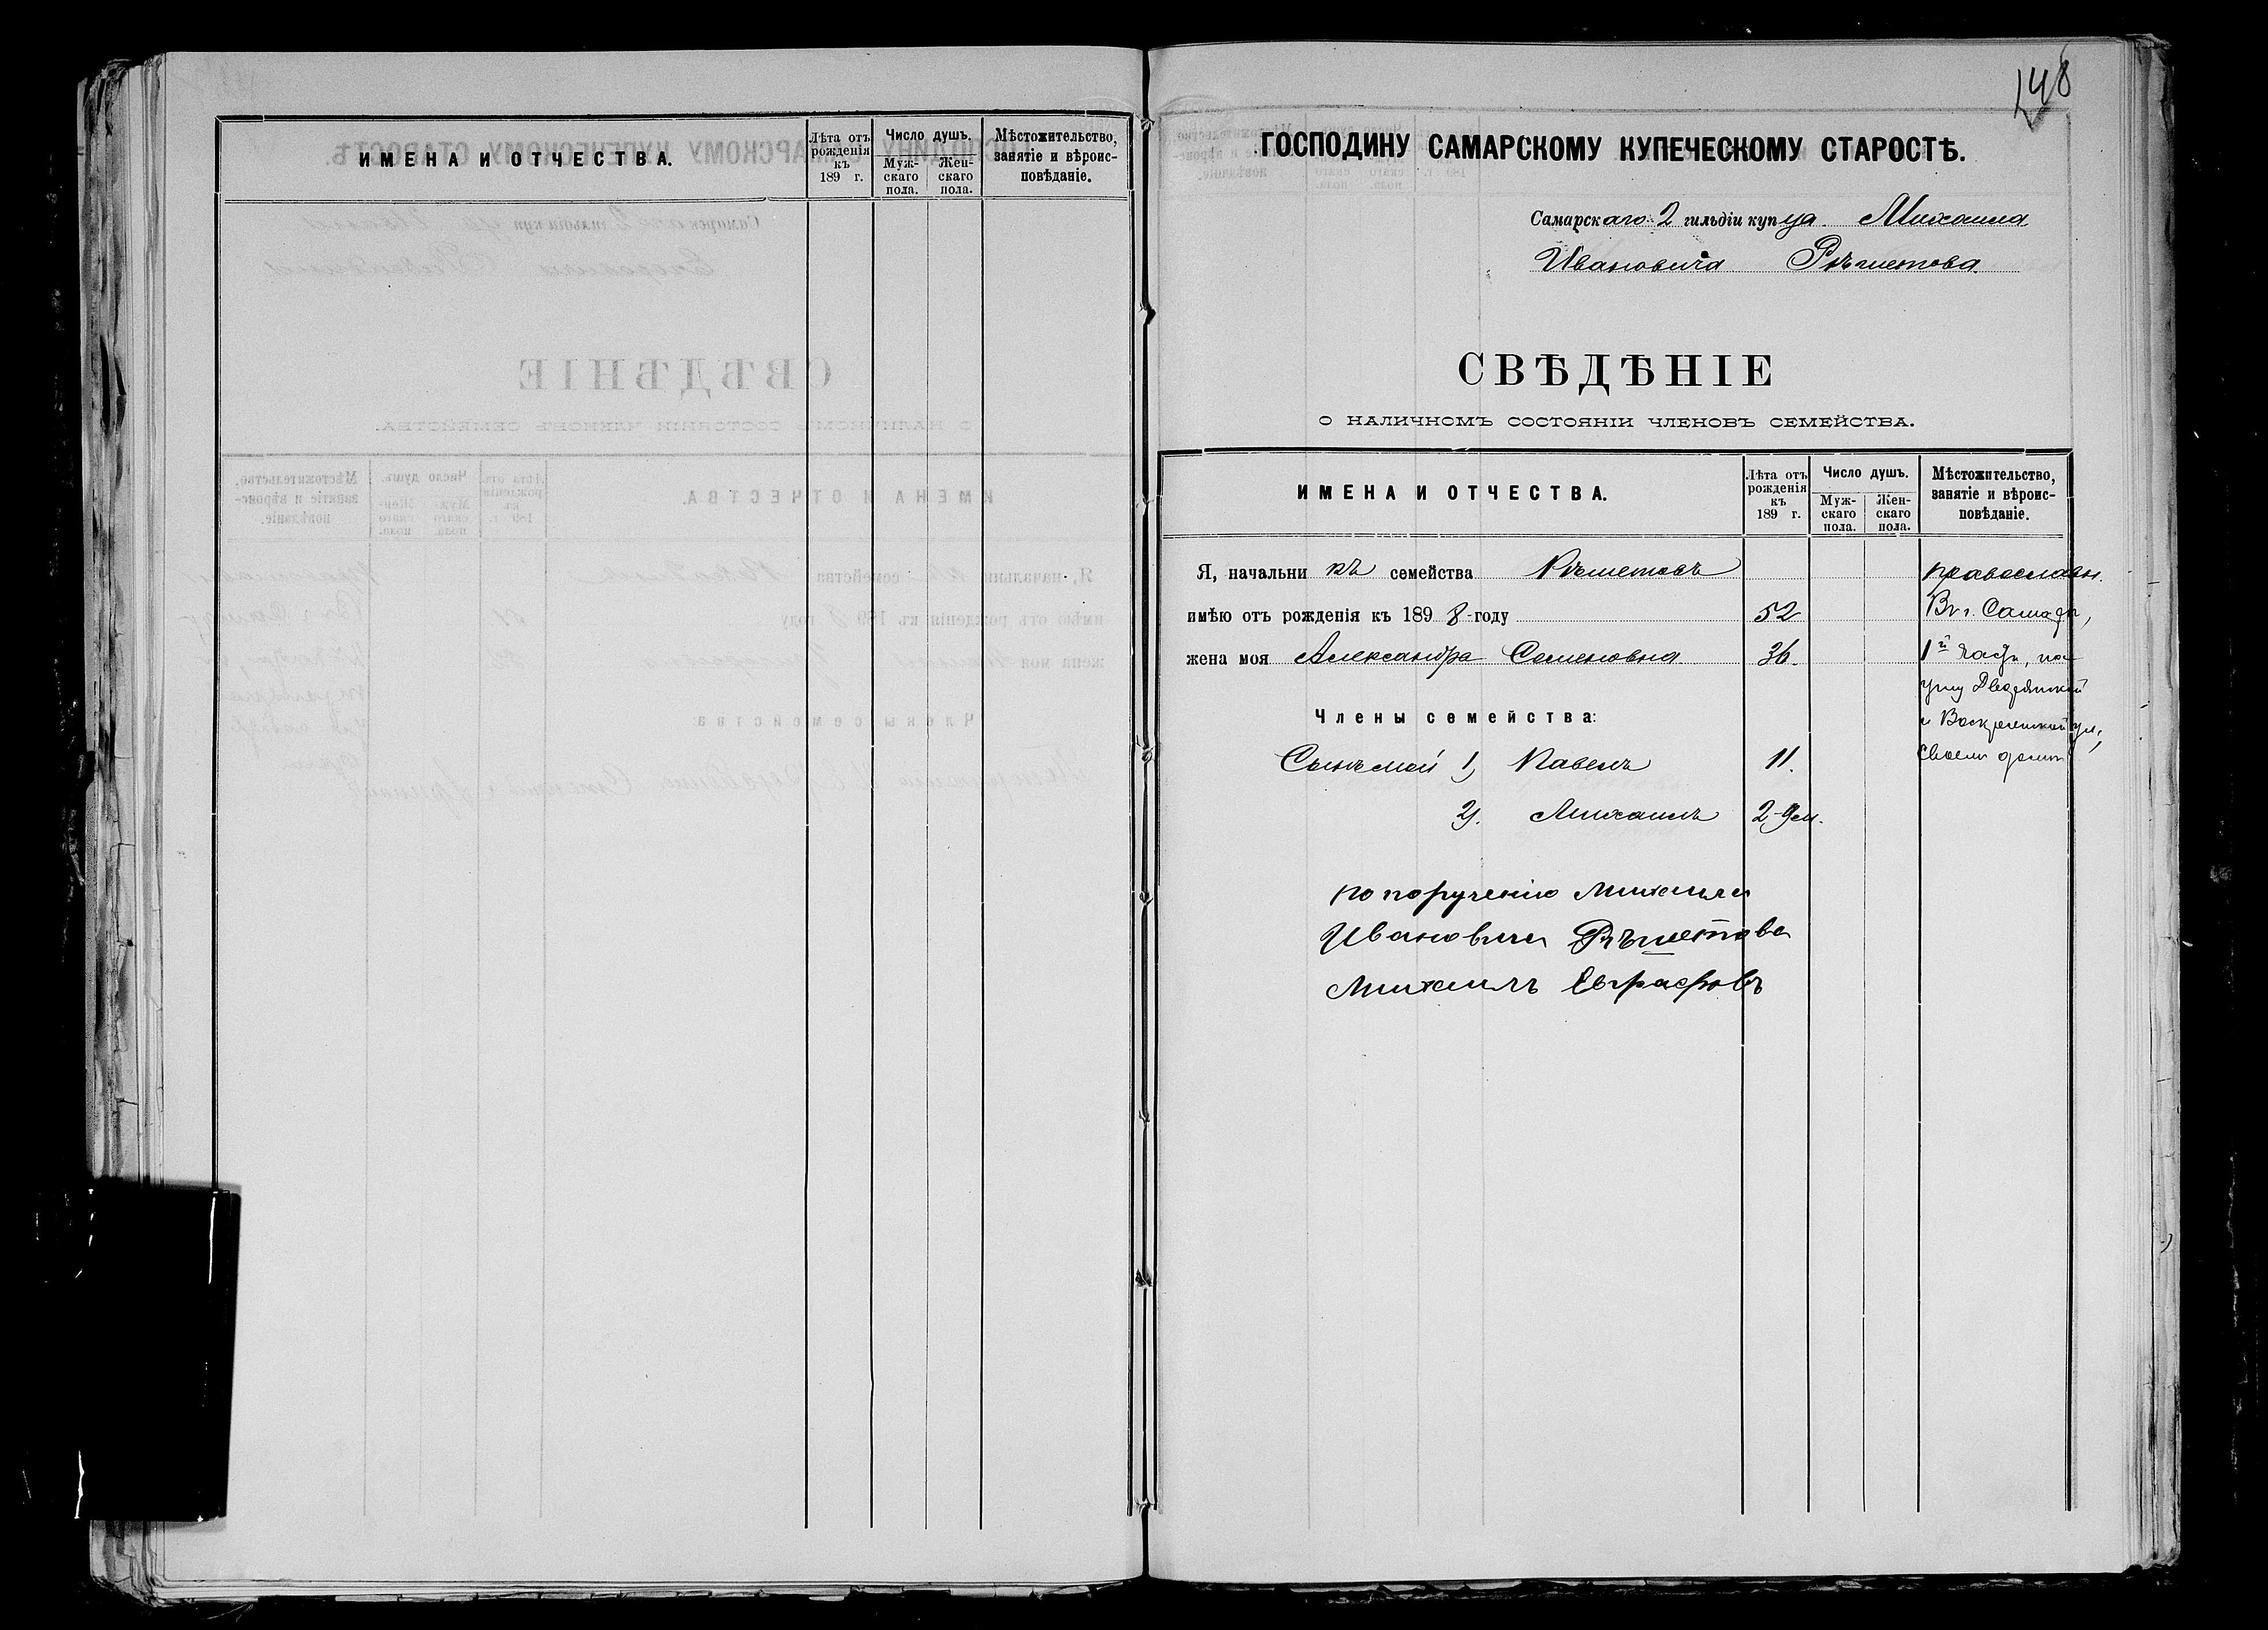 ИМЕНА И ОТЧЕСТВА.
Лѣта отъ рожденія къ 189 г.
Число душъ.
Мужскаго пола.
Женскаго пола.
Мѣстожительство, занятіе и вѣроисповѣданіе.
148
ГОСПОДИНУ САМАРСКОМУ КУПЕЧЕСКОМУ СТАРОСТѢ.
Самарскаго 2 гильдіи купца Михаила
Ивановича Рѣшетова
СВѢДѢНІЕ
О НАЛИЧНОМЪ СОСТОЯНІИ ЧЛЕНОВЪ СЕМЕЙСТВА.
ИМЕНА И ОТЧЕСТВА.
Лѣта отъ
рожденія
къ
189 г.
Число душъ.
Муж-
скаго
пола.
Жен-
скаго
пола.
Мѣстожительство,
занятіе и вѣроис-
повѣданіе.
Я, начальникъ семейства Рѣшетовъ православн.
имѣю отъ рожденія къ 1898-году 52 Въ г. Самарѣ,
жена моя Александра Семеновна 36. 1й части, на
углу Дворянской
Члены семейства: и Воскресенской ул.,
Сынъ мой 1, Павелъ 11. своемъ домѣ
2). Михаилъ 2-9 м.
по порученію Михаила
Ивановича Рѣшетова
Михаилъ Евграфовъ